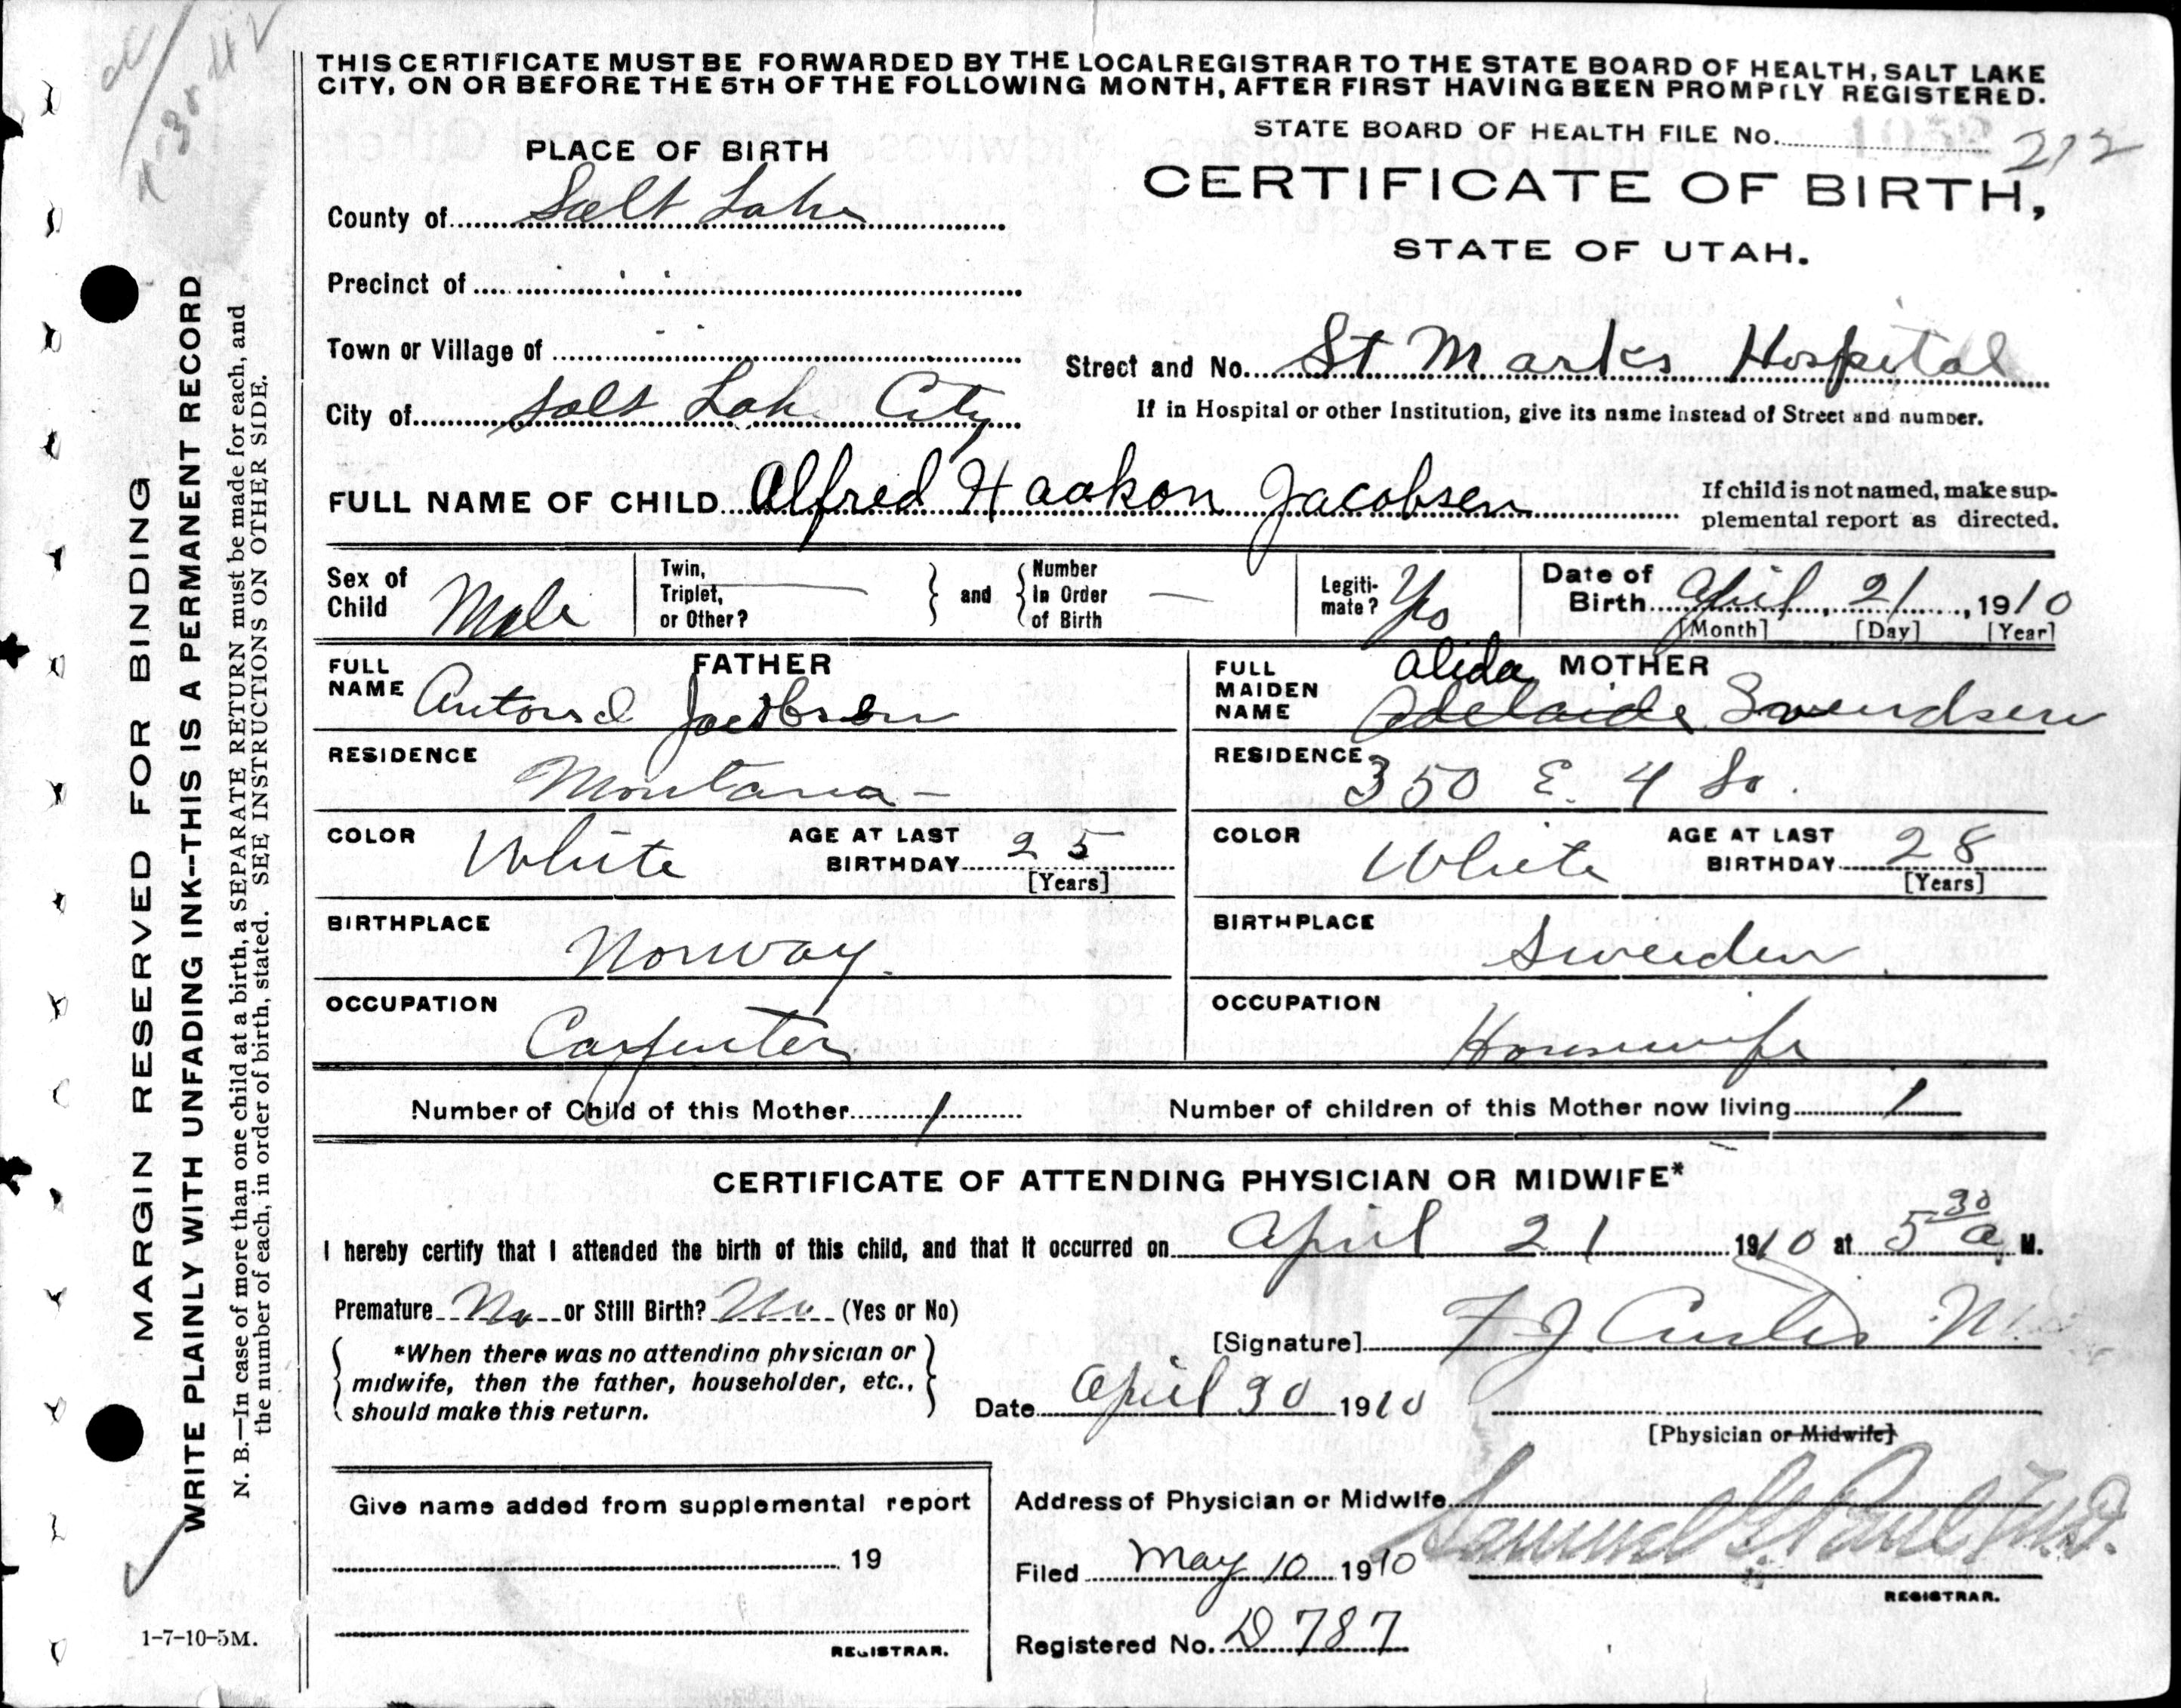 THIS CERTIFICATE MUST BE FORWARDED BY THE LOCAL REGISTRAR TO THE STATE BOARD OF HEALTH, SALT LAKE
CITY, ON OR BEFORE THE 5TH OF THE FOLLOWING MONTH, AFTER FIRST HAVING BEEN PROMPTLY REGISTERED.
STATE BOARD OF HEALTH FILE No. 212
PLACE OF BIRTH
CERTIFICATE OF BIRTH,
STATE OF UTAH.
County of Salt Lake
Precinct of
Town or Village of
Street and No. St Marks Hospital
City of Salt Lake City
If in Hospital or other Institution, give its name instead of Street and number.
FULL NAME OF CHILD Alfred Haakon Jacobsen
If child is not named, make sup-
plemental report as directed.
Sex of Child Male
Twin, Triplet, or Other?
and
Number in Order of Birth
Legiti-mate? Yes
Date of Birth April 21, 1910
[Month] [Day] [Year]
FATHER
FULL NAME Jacobsen
MOTHER
FULL MAIDEN NAME Alida Adelaide Swendsen
RESIDENCE Montana
RESIDENCE 350 E. 4 So.
COLOR White AGE AT LAST BIRTHDAY 25
[Years]
COLOR White AGE AT LAST BIRTHDAY 28
[Years]
BIRTHPLACE Norway.
BIRTHPLACE Sweeden
OCCUPATION Carpenter
OCCUPATION Housewife
Number of Child of this Mother 1
Number of children of this Mother now living 1
CERTIFICATE OF ATTENDING PHYSICIAN OR MIDWIFE*
I hereby certify that I attended the birth of this child, and that it occurred on April 21 1910 at 5 30 a M.
Premature No or Still Birth? No (Yes or No)
[Signature] F J Curtis M
*When there was no attending physician or
midwife, then the father, householder, etc.,
should make this return.
Date April 30 1910
[Physician or Midwife]
Give name added from supplemental report
19
REGISTRAR.
Address of Physician or Midwife
Samuel G. Paul M.D.
Filed May 10 1910
REGISTRAR.
Registered No. D 787
MARGIN RESERVED FOR BINDING
WRITE PLAINLY WITH UNFADING INK--THIS IS A PERMANENT RECORD
N. B.—In case of more than one child at a birth, a SEPARATE RETURN must be made for each, and
the number of each, in order of birth, stated. SEE INSTRUCTIONS ON OTHER SIDE.
1-7-10-5M.